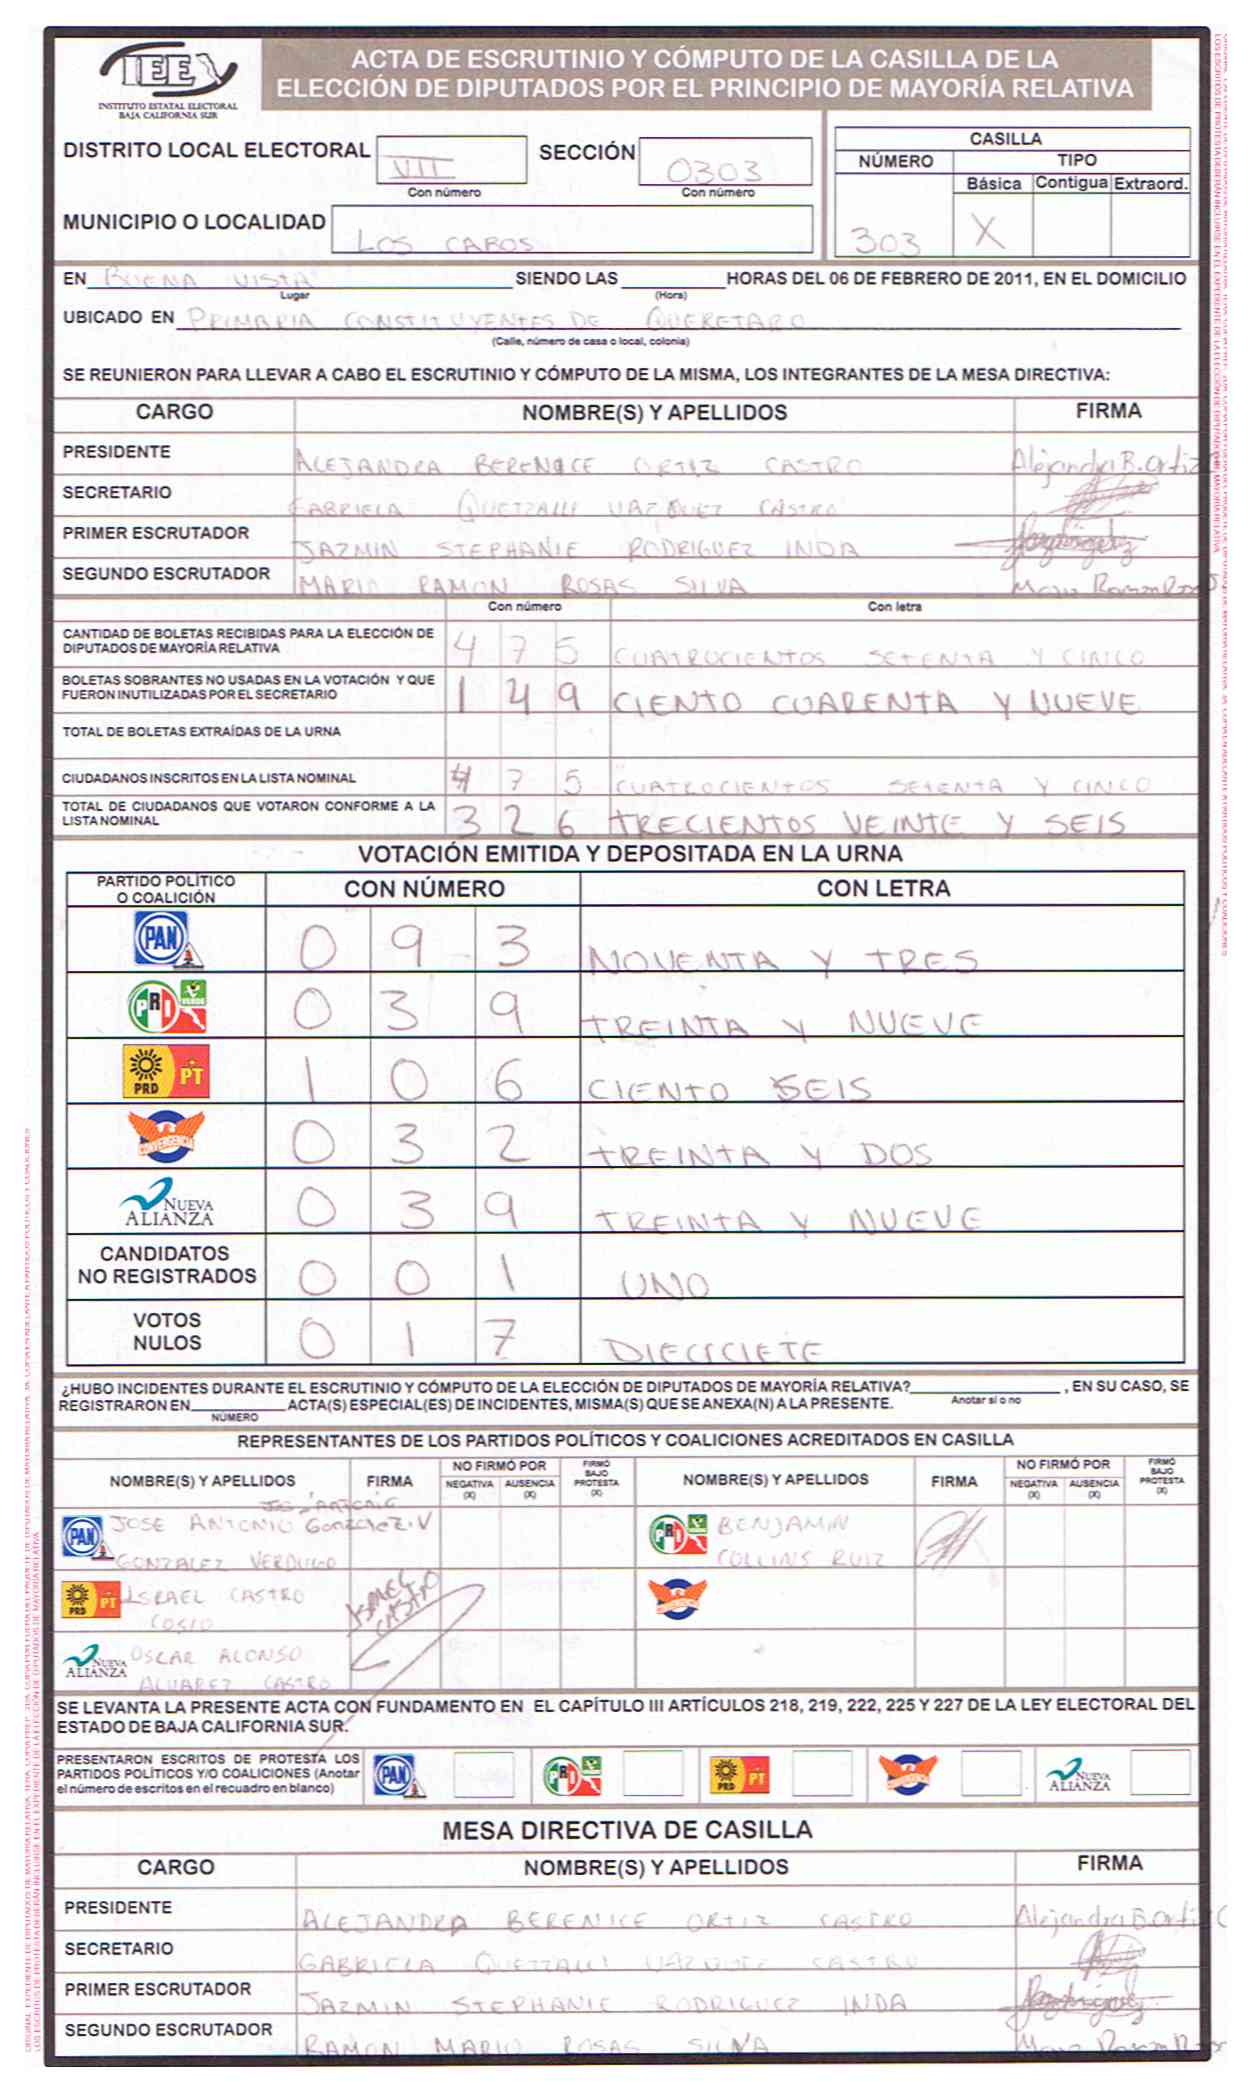 IEE
INSTITUTO ESTATAL ELECTORAL
BAJA CALIFORNIA SUR
ACTA DE ESCRUTINIO Y CÓMPUTO DE LA CASILLA DE LA
ELECCIÓN DE DIPUTADOS POR EL PRINCIPIO DE MAYORÍA RELATIVA
DISTRITO LOCAL ELECTORAL VII
Con número
SECCIÓN 0303
Con número
MUNICIPIO O LOCALIDAD LOS CABOS
CASILLA
NÚMERO TIPO
Básica Contigua Extraord.
303 X
EN BUENA VISTA SIENDO LAS HORAS DEL 06 DE FEBRERO DE 2011, EN EL DOMICILIO
Lugar (Hora)
UBICADO EN PRIMARIA CONSTITUYENTES DE QUERETARO
(Calle, número de casa o local, colonia)
SE REUNIERON PARA LLEVAR A CABO EL ESCRUTINIO Y CÓMPUTO DE LA MISMA, LOS INTEGRANTES DE LA MESA DIRECTIVA:
CARGO NOMBRE(S) Y APELLIDOS FIRMA
PRESIDENTE ALEJANDRA BERENICE ORTIZ CASTRO Alejandra B. Ortiz
SECRETARIO GABRIELA QUETZALLI VAZQUEZ CASTRO
PRIMER ESCRUTADOR JAZMIN STEPHANIE RODRIGUEZ INDA
SEGUNDO ESCRUTADOR MARIO RAMON ROSAS SILVA
Con número Con letra
CANTIDAD DE BOLETAS RECIBIDAS PARA LA ELECCIÓN DE
DIPUTADOS DE MAYORÍA RELATIVA 4 7 5 CUATROCIENTOS SETENTA Y CINCO
BOLETAS SOBRANTES NO USADAS EN LA VOTACIÓN Y QUE
FUERON INUTILIZADAS POR EL SECRETARIO 1 4 9 CIENTO CUARENTA Y NUEVE
TOTAL DE BOLETAS EXTRAÍDAS DE LA URNA
CIUDADANOS INSCRITOS EN LA LISTA NOMINAL 4 7 5 CUATROCIENTOS SETENTA Y CINCO
TOTAL DE CIUDADANOS QUE VOTARON CONFORME A LA
LISTA NOMINAL 3 2 6 TRECIENTOS VEINTE Y SEIS
VOTACIÓN EMITIDA Y DEPOSITADA EN LA URNA
PARTIDO POLÍTICO
O COALICIÓN CON NÚMERO CON LETRA
PAN 0 9 3 NOVENTA Y TRES
PRI VERDE 0 3 9 TREINTA Y NUEVE
PRD PT 1 0 6 CIENTO SEIS
CONVERGENCIA 0 3 2 TREINTA Y DOS
NUEVA ALIANZA 0 3 9 TREINTA Y NUEVE
CANDIDATOS
NO REGISTRADOS 0 0 1 UNO
VOTOS
NULOS 0 1 7 DIECICIETE
¿HUBO INCIDENTES DURANTE EL ESCRUTINIO Y CÓMPUTO DE LA ELECCIÓN DE DIPUTADOS DE MAYORÍA RELATIVA? , EN SU CASO, SE
Anotar sí o no
REGISTRARON EN ACTA(S) ESPECIAL(ES) DE INCIDENTES, MISMA(S) QUE SE ANEXA(N) A LA PRESENTE.
NÚMERO
REPRESENTANTES DE LOS PARTIDOS POLÍTICOS Y COALICIONES ACREDITADOS EN CASILLA
NOMBRE(S) Y APELLIDOS FIRMA NO FIRMÓ POR NEGATIVA (X) AUSENCIA (X) FIRMÓ BAJO PROTESTA (X) NOMBRE(S) Y APELLIDOS FIRMA NO FIRMÓ POR NEGATIVA (X) AUSENCIA (X) FIRMÓ BAJO PROTESTA (X)
PAN JOSE ANTONIO Gonzalez V
GONZALEZ VERDUGO
PRI BENJAMIN
COLLINS RUIZ
PRD PT ISRAEL CASTRO
COSIO
ISRAEL CASTRO
NUEVA ALIANZA OSCAR ALONSO
ALVAREZ CASTRO
SE LEVANTA LA PRESENTE ACTA CON FUNDAMENTO EN EL CAPÍTULO III ARTÍCULOS 218, 219, 222, 225 Y 227 DE LA LEY ELECTORAL DEL
ESTADO DE BAJA CALIFORNIA SUR.
PRESENTARON ESCRITOS DE PROTESTA LOS
PARTIDOS POLÍTICOS Y/O COALICIONES (Anotar
el número de escritos en el recuadro en blanco)
PAN PRI PRD PT NUEVA ALIANZA
MESA DIRECTIVA DE CASILLA
CARGO NOMBRE(S) Y APELLIDOS FIRMA
PRESIDENTE ALEJANDRA BERENICE ORTIZ CASTRO Alejandra B. Ortiz C
SECRETARIO GABRIELA QUETZALLI VAZQUEZ CASTRO
PRIMER ESCRUTADOR JAZMIN STEPHANIE RODRIGUEZ INDA
SEGUNDO ESCRUTADOR RAMON MARIO ROSAS SILVA